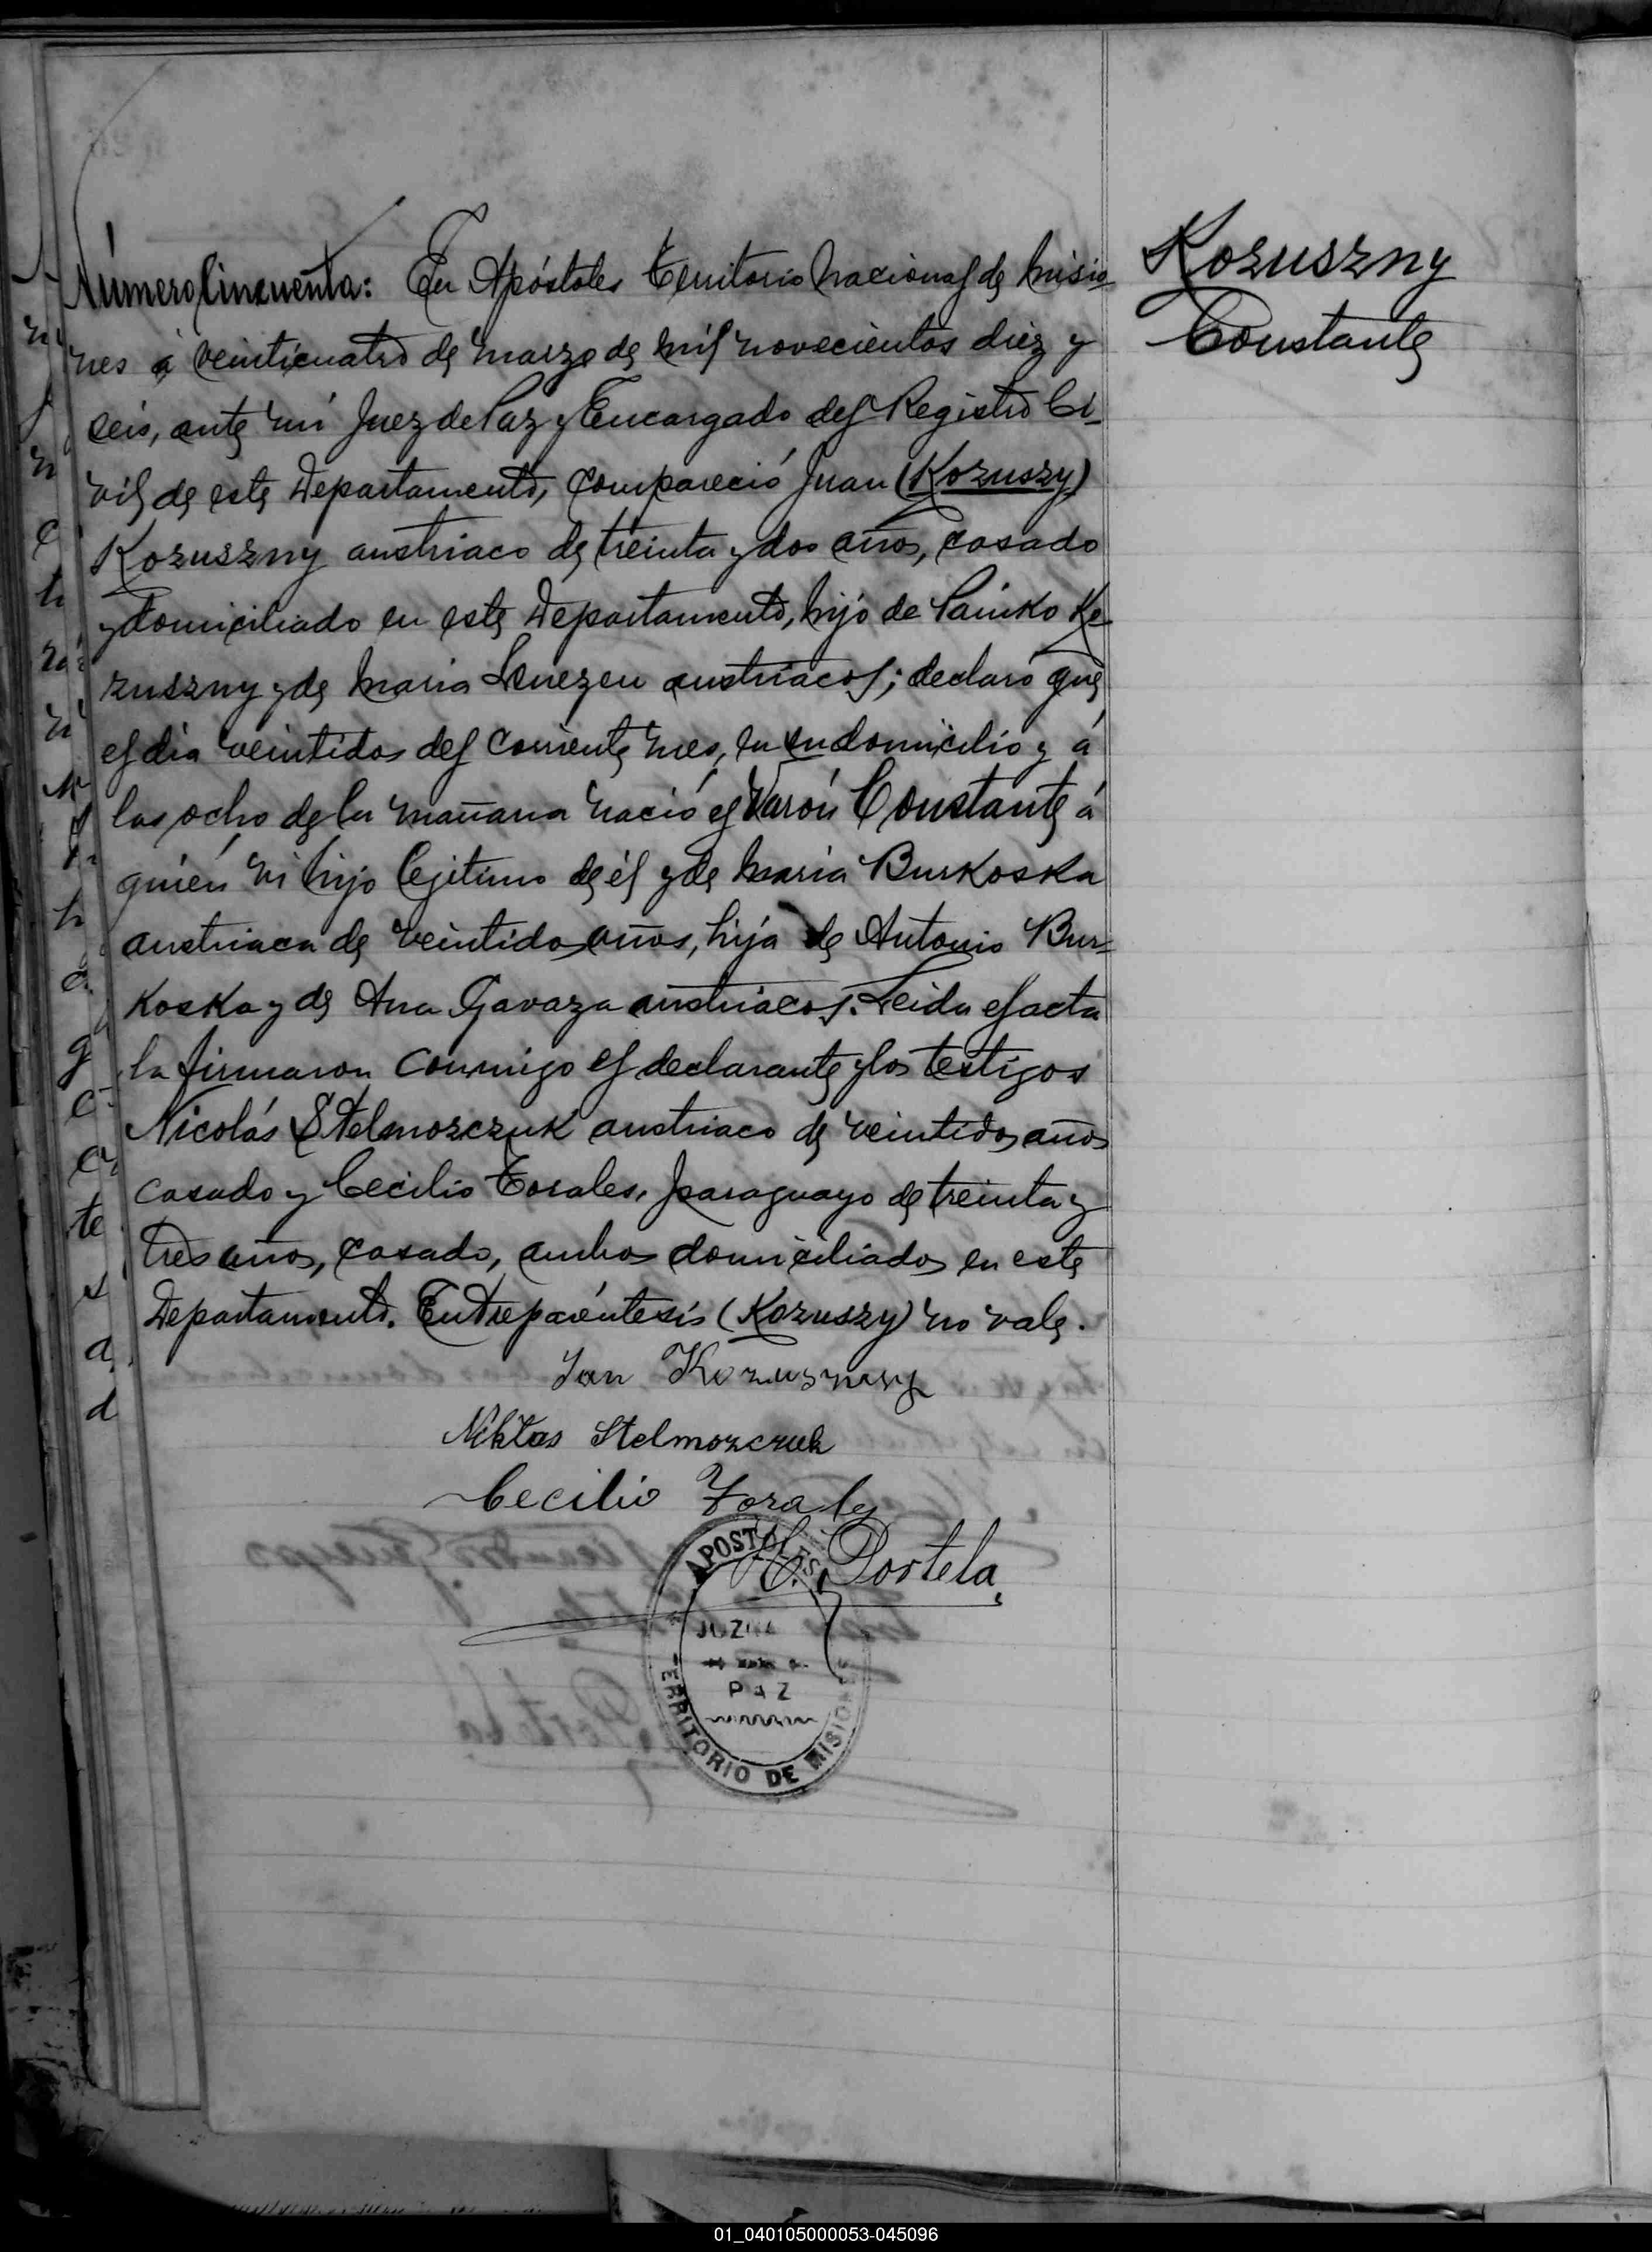 Número Cincuenta: En Apóstoles Territorio Nacional de Misio-
nes á veinticuatro de Marzo de mil novecientos diez y
seis, ante mí Juez de Paz y Encargado del Registro Ci-
vil de este Departamento, compareció Juan (Kozuszy)
Kozuszny austriaco de treinta y dos años, casado
y domiciliado en este Departamento, hijo de Painko Ko-
zuszny y de Maria austriacos; declaró que
el dia veintidos del corriente mes, en su domicilio y á
las ocho de la mañana nació el Varón Constante á
quién vi hijo legitimo de él y de Maria Burkoska
austriaca de veintidos años, hija de Antonio Bur-
koska y de Ana Gavaza austriacos. Leida el acta
la firmaron conmigo el declarante y los testigos
Nicolás Stelmoszczuk austriaco de veintidos años
casado y Cecilio Torales, paraguayo de treinta y
tres años, casado, ambos domiciliados en este
Departamento. Entreparéntesis (Kozuszy) no vale.
Jan Kozuszny
Niktas Stelmozczuk
Cecilio Torales
Portela
APOSTOLES
JUZGA
PAZ
TERRITORIO DE MISIONES
Kozuszny
Constante
01_040105000053-045096